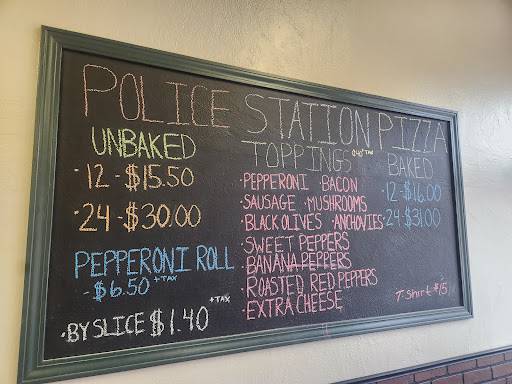 POLICE STATION PIZZA
UNBAKED
·12 - $15.50
·24 - $30.00
PEPPERONI ROLL
- $6.50 + TAX
·BY SLICE $1.40 + TAX
TOPPINGS
·PEPPERONI ·BACON
·SAUSAGE ·MUSHROOMS
·BLACK OLIVES ·ANCHOVIES
·SWEET PEPPERS
·BANANA PEPPERS
·ROASTED RED PEPPERS
·EXTRA CHEESE
BAKED
·12 - $16.00
·24 $31.00
T-Shirt $15